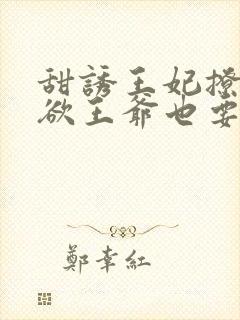 甜誘王妃撩
欲王爺也要
鄭幸紅